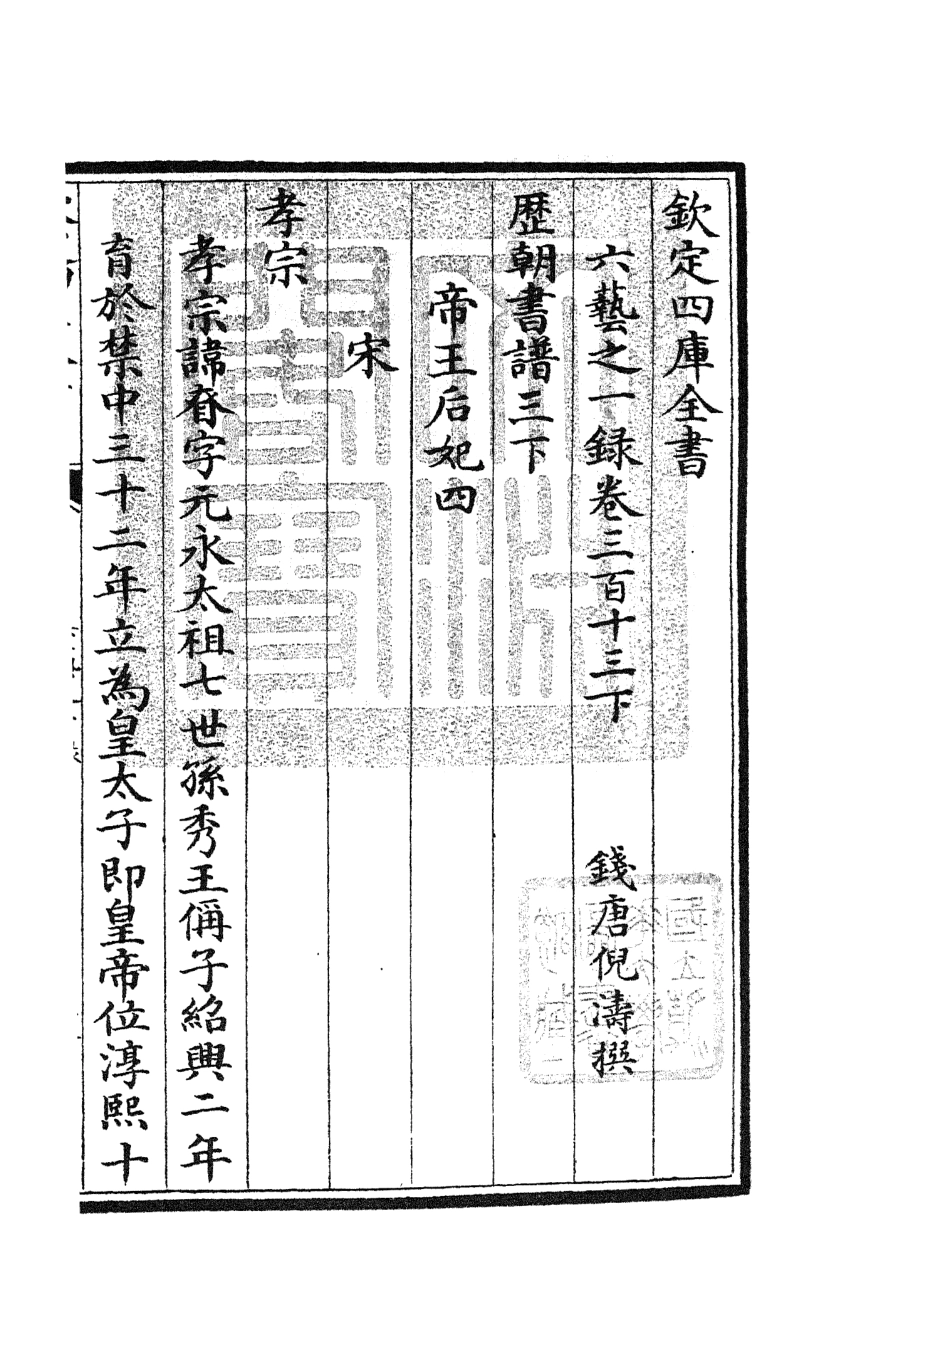 欽定四庫全書
六藝之一録卷三百十三下
錢唐倪濤撰
歴朝書譜三下
帝王后妃四
宋
孝宗
孝宗諱眘字元永太祖七世孫秀王偁子紹興二年
育於禁中三十二年立為皇太子即皇帝位淳熙十